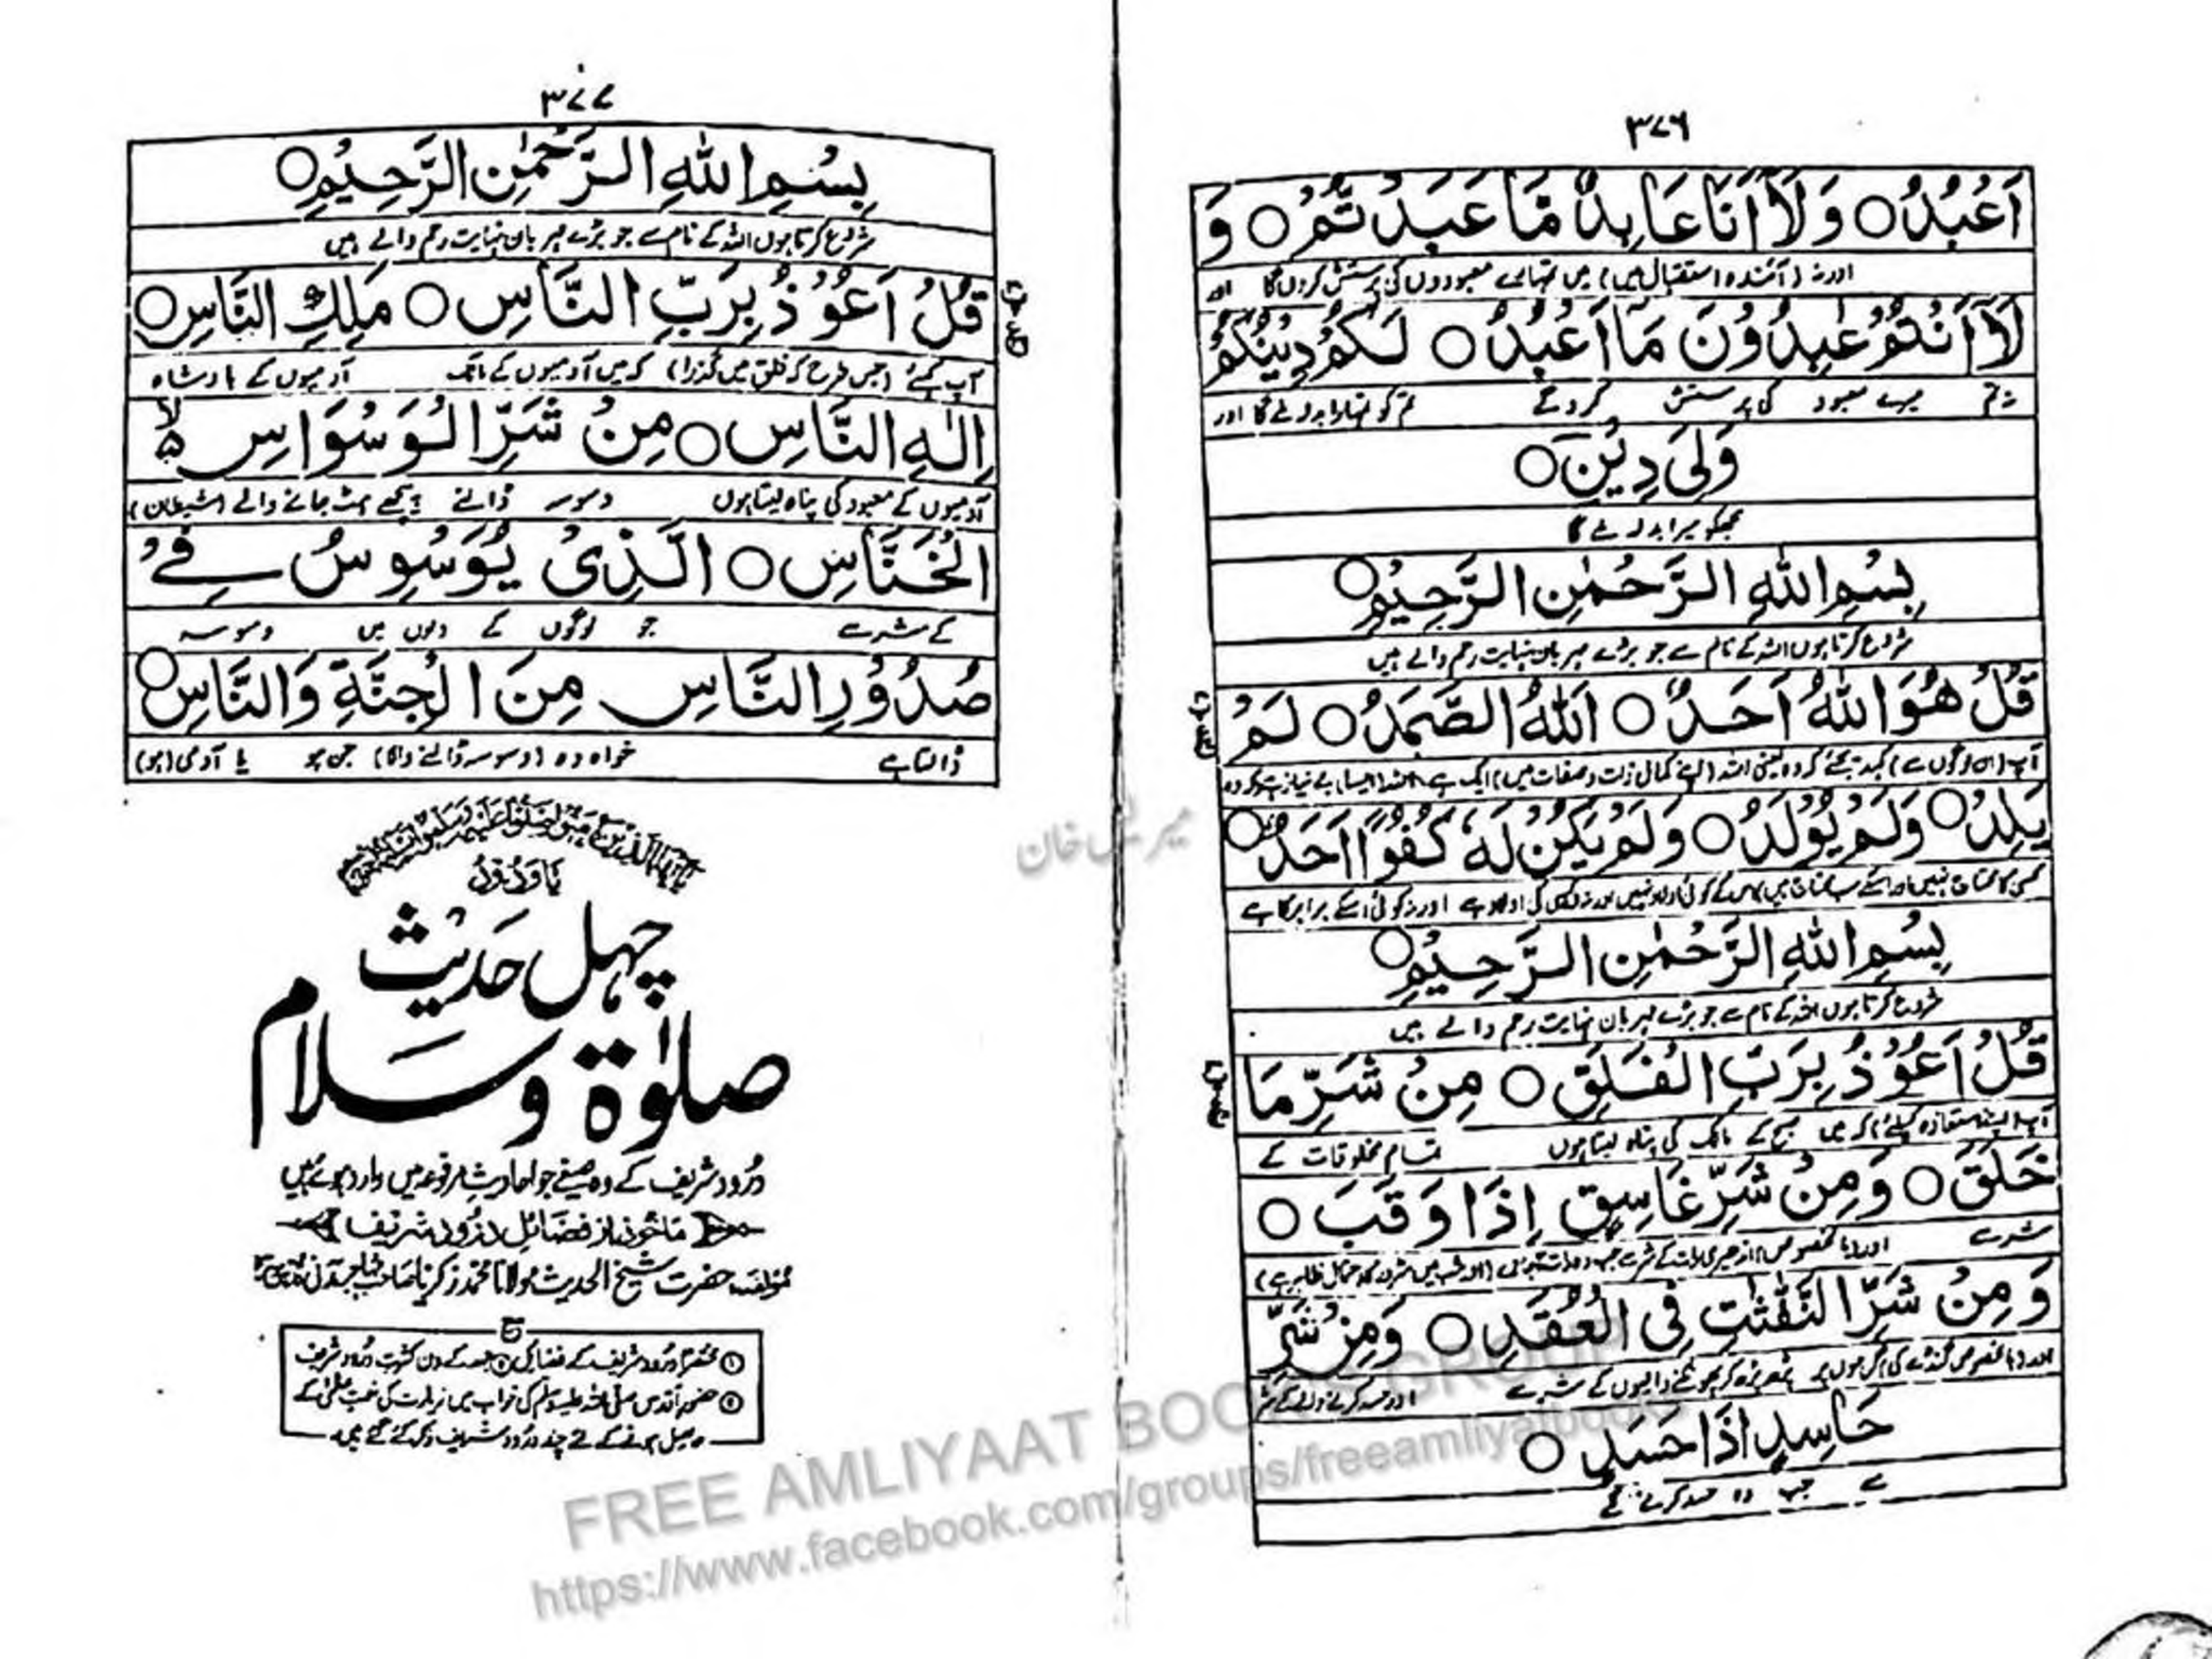 ۳۷۶
اَعْبُدُ ○ وَلَآ اَنَا عَابِدٌ مَّا عَبَدْتُّمْ ○ وَ
اور نہ (آئندہ استقبال میں) میں تمہارے معبودوں کی پرستش کروں گا اور
لَآ اَنْتُمْ عٰبِدُوْنَ مَآ اَعْبُدُ ○ لَكُمْ دِيْنُكُمْ
نہ تم میرے معبود کی پرستش کروگے تم کو تمہارا بدلہ ملے گا اور
وَلِيَ دِيْنِ ○
مجھکو میرا بدلہ ملے گا
بِسْمِ اللّٰهِ الرَّحْمٰنِ الرَّحِيْمِ ○
شروع کرتا ہوں اللہ کے نام سے جو بڑے مہربان نہایت رحم والے ہیں
قُلْ هُوَ اللّٰهُ اَحَدٌ ○ اَللّٰهُ الصَّمَدُ ○ لَمْ
آپ (ان لوگوں سے) کہہ دیجئے کہ وہ یعنی اللہ (اپنے کمال ذات و صفات میں) ایک ہے اللہ (ایسا) بے نیاز ہے کہ وہ
يَلِدْ ○ وَلَمْ يُوْلَدْ ○ وَلَمْ يَكُنْ لَّهٗ كُفُوًا اَحَدٌ ○
کسی کا محتاج نہیں اور اسکے سب محتاج ہیں اس کے کوئی اولاد نہیں اور نہ وہ کسی کی اولاد ہے اور نہ کوئی اسکے برابر کا ہے
بِسْمِ اللّٰهِ الرَّحْمٰنِ الرَّحِيْمِ ○
شروع کرتا ہوں اللہ کے نام سے جو بڑے مہربان نہایت رحم والے ہیں
قُلْ اَعُوْذُ بِرَبِّ الْفَلَقِ ○ مِنْ شَرِّ مَا
آپ (اپنے استعاذہ کیلئے) کہ میں صبح کے مالک کی پناہ لیتا ہوں تمام مخلوقات کے
خَلَقَ ○ وَمِنْ شَرِّ غَاسِقٍ اِذَا وَقَبَ ○
شر سے اور (بالخصوص) اندھیری رات کے شر سے جب وہ رات
وَمِنْ شَرِّ النَّفّٰثٰتِ فِي الْعُقَدِ ○ وَمِنْ شَرِّ
اور (بالخصوص گنڈے کی) گرہوں پر پڑھ پڑھ کر پھونکنے والیوں کے شر سے اور حسد کرنے والے کے شر
حَاسِدٍ اِذَا حَسَدَ ○
سے جب وہ حسد کرنے لگے
۳۷۷
بِسْمِ اللّٰهِ الرَّحْمٰنِ الرَّحِيْمِ ○
شروع کرتا ہوں اللہ کے نام سے جو بڑے مہربان نہایت رحم والے ہیں
قُلْ اَعُوْذُ بِرَبِّ النَّاسِ ○ مَلِكِ النَّاسِ ○
آپ کہئے (جس طرح کہ فلق میں گذرا) کہ میں آدمیوں کے مالک آدمیوں کے بادشاہ
اِلٰهِ النَّاسِ ○ مِنْ شَرِّ الْوَسْوَاسِ
آدمیوں کے معبود کی پناہ لیتا ہوں وسوسہ ڈالنے پیچھے ہٹ جانے والے (شیطان)
الْخَنَّاسِ ○ الَّذِيْ يُوَسْوِسُ فِيْ
کے شر سے جو لوگوں کے دلوں میں وسوسہ
صُدُوْرِ النَّاسِ مِنَ الْجِنَّةِ وَالنَّاسِ ○
ڈالتا ہے خواہ وہ (وسوسہ ڈالنے والا) جن ہو یا آدمی (ہو)
يٰٓاَيُّهَا الَّذِيْنَ اٰمَنُوْا صَلُّوْا عَلَيْهِ وَسَلِّمُوْا تَسْلِيْمًا
يَا وَدُوْدُ
چہل حدیث
صلوٰۃ وسلام
درود شریف کے وہ صیغے جو احادیثِ مرفوعہ میں وارد ہوئے ہیں
ماخوذ از فضائل درود شریف
مؤلفہ حضرت شیخ الحدیث مولانا محمد زکریا صاحب مہاجر مدنی
مع
① مختصراً درود شریف کے فضائل ② جمعہ کے دن کثرت درود شریف
③ حضور اقدس صلی اللہ علیہ وسلم کی خواب میں زیارت کی نعمت عظمیٰ کے
حاصل ہونے کے لئے چند درود شریف ذکر کئے گئے ہیں۔
خان
FREE AMLIYAAT BOOKS GROUP
https://www.facebook.com/groups/freeamliyatbooks